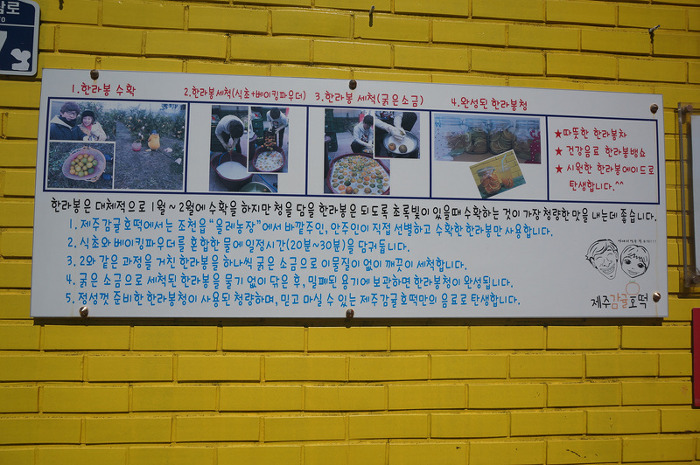 1. 한라봉 수확
2. 한라봉세척(식초+베이킹파우더)
3. 한라봉 세척(굵은소금)
4. 완성된 한라봉청
★ 따뜻한 한라봉차
★ 건강음료 한라봉뱅쇼
★ 시원한 한라봉에이드로
탄생합니다.^^
한라봉은 대체적으로 1월~2월에 수확을 하지만 청을 담을 한라봉은 되도록 초록빛이 있을때 수확하는 것이 가장 청량한 맛을 내는데 좋습니다.
1. 제주감귤호떡에서는 조천읍 "올레농장"에서 바깥주인, 안주인이 직접 선별하고 수확한 한라봉만 사용합니다.
2. 식초와 베이킹파우더를 혼합한 물에 일정시간(20분~30분)을 담궈둡니다.
3. 2와 같은 과정을 거친 한라봉을 하나씩 굵은 소금으로 이물질이 없이 깨끗이 세척합니다.
4. 굵은 소금으로 세척된 한라봉을 물기 없이 닦은 후, 밀폐된 용기에 보관하면 한라봉청이 완성됩니다.
5. 정성껏 준비한 한라봉청이 사용된 청량하며, 믿고 마실 수 있는 제주감귤호떡만의 음료로 탄생합니다.
제주감귤호떡